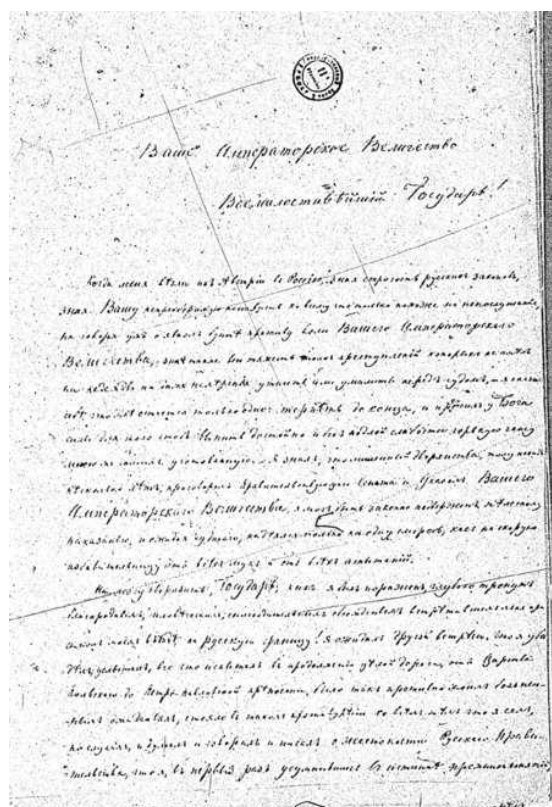 Ваше Императорское Величество
Всемилостивѣйшій Государь!
Когда меня везли изъ Австріи въ Россію, зная строгость русскихъ законовъ,
зная Вашу непреоборимую ненависть ко всему что только похоже на непослушаніе,
не говоря уже о явномъ бунтѣ противу воли Вашего Императорскаго
Величества, зналъ также всю тяжесть моихъ преступленій которыхъ не
надѣялся и даже не утаить или умалить передъ судомъ, я сказалъ
себѣ что мнѣ остается только одно: терпѣть до конца, и просилъ у Бога
силы для того чтобъ выпить достойно и безъ подлой слабости горькую чашу
мною же самимъ уготованную. Я зналъ, что лишенный дворянства, тому назадъ
нѣсколько лѣтъ, приговоромъ Правительствующаго Сената и Указомъ Вашего
Императорскаго Величества, я могъ быть законно подверженъ тѣлесному
наказанію, и ожидая худшаго, надѣялся только на одну смерть, какъ на скорую
избавительницу отъ всѣхъ мукъ и отъ всѣхъ испытаній.
Не могу выразить, Государь, какъ я былъ пораженъ, глубоко тронутъ
благороднымъ, человѣческимъ, снисходительнымъ обхожденіемъ встрѣтившимъ
меня при въѣздѣ на русскую границу! Я ожидалъ другой встрѣчи. Что я увидѣлъ,
услышалъ, все что испыталъ въ продолженіи цѣлой дороги, отъ Царства
Польскаго до Петропавловской крѣпости, было такъ противно моимъ боязненнымъ
ожиданіямъ, стояло въ такомъ противурѣчіи со всѣмъ тѣмъ что я самъ,
по слухамъ, и думалъ и говорилъ и писалъ о жестокости Русскаго Прави-
тельства, что я, въ первый разъ усумнившись въ истинѣ прежнихъ понятій,